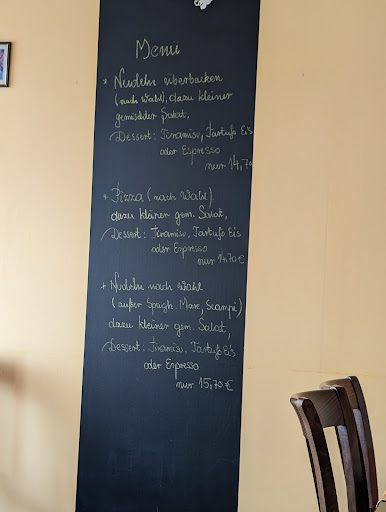 Menü
* Nudeln überbacken
(nach Wahl), dazu kleiner
gemischter Salat,
Dessert: Tiramisu, Tartufo Eis
oder Espresso
nur 14,70
+ Pizza (nach Wahl)
dazu kleiner gem. Salat,
Dessert: Tiramisu, Tartufo Eis
oder Espresso
nur 14,70 €
+ Nudeln nach Wahl
(außer Spagh. Mare, Scampi)
dazu kleiner gem. Salat,
Dessert: Tiramisu, Tartufo Eis
oder Espresso
nur 15,70 €